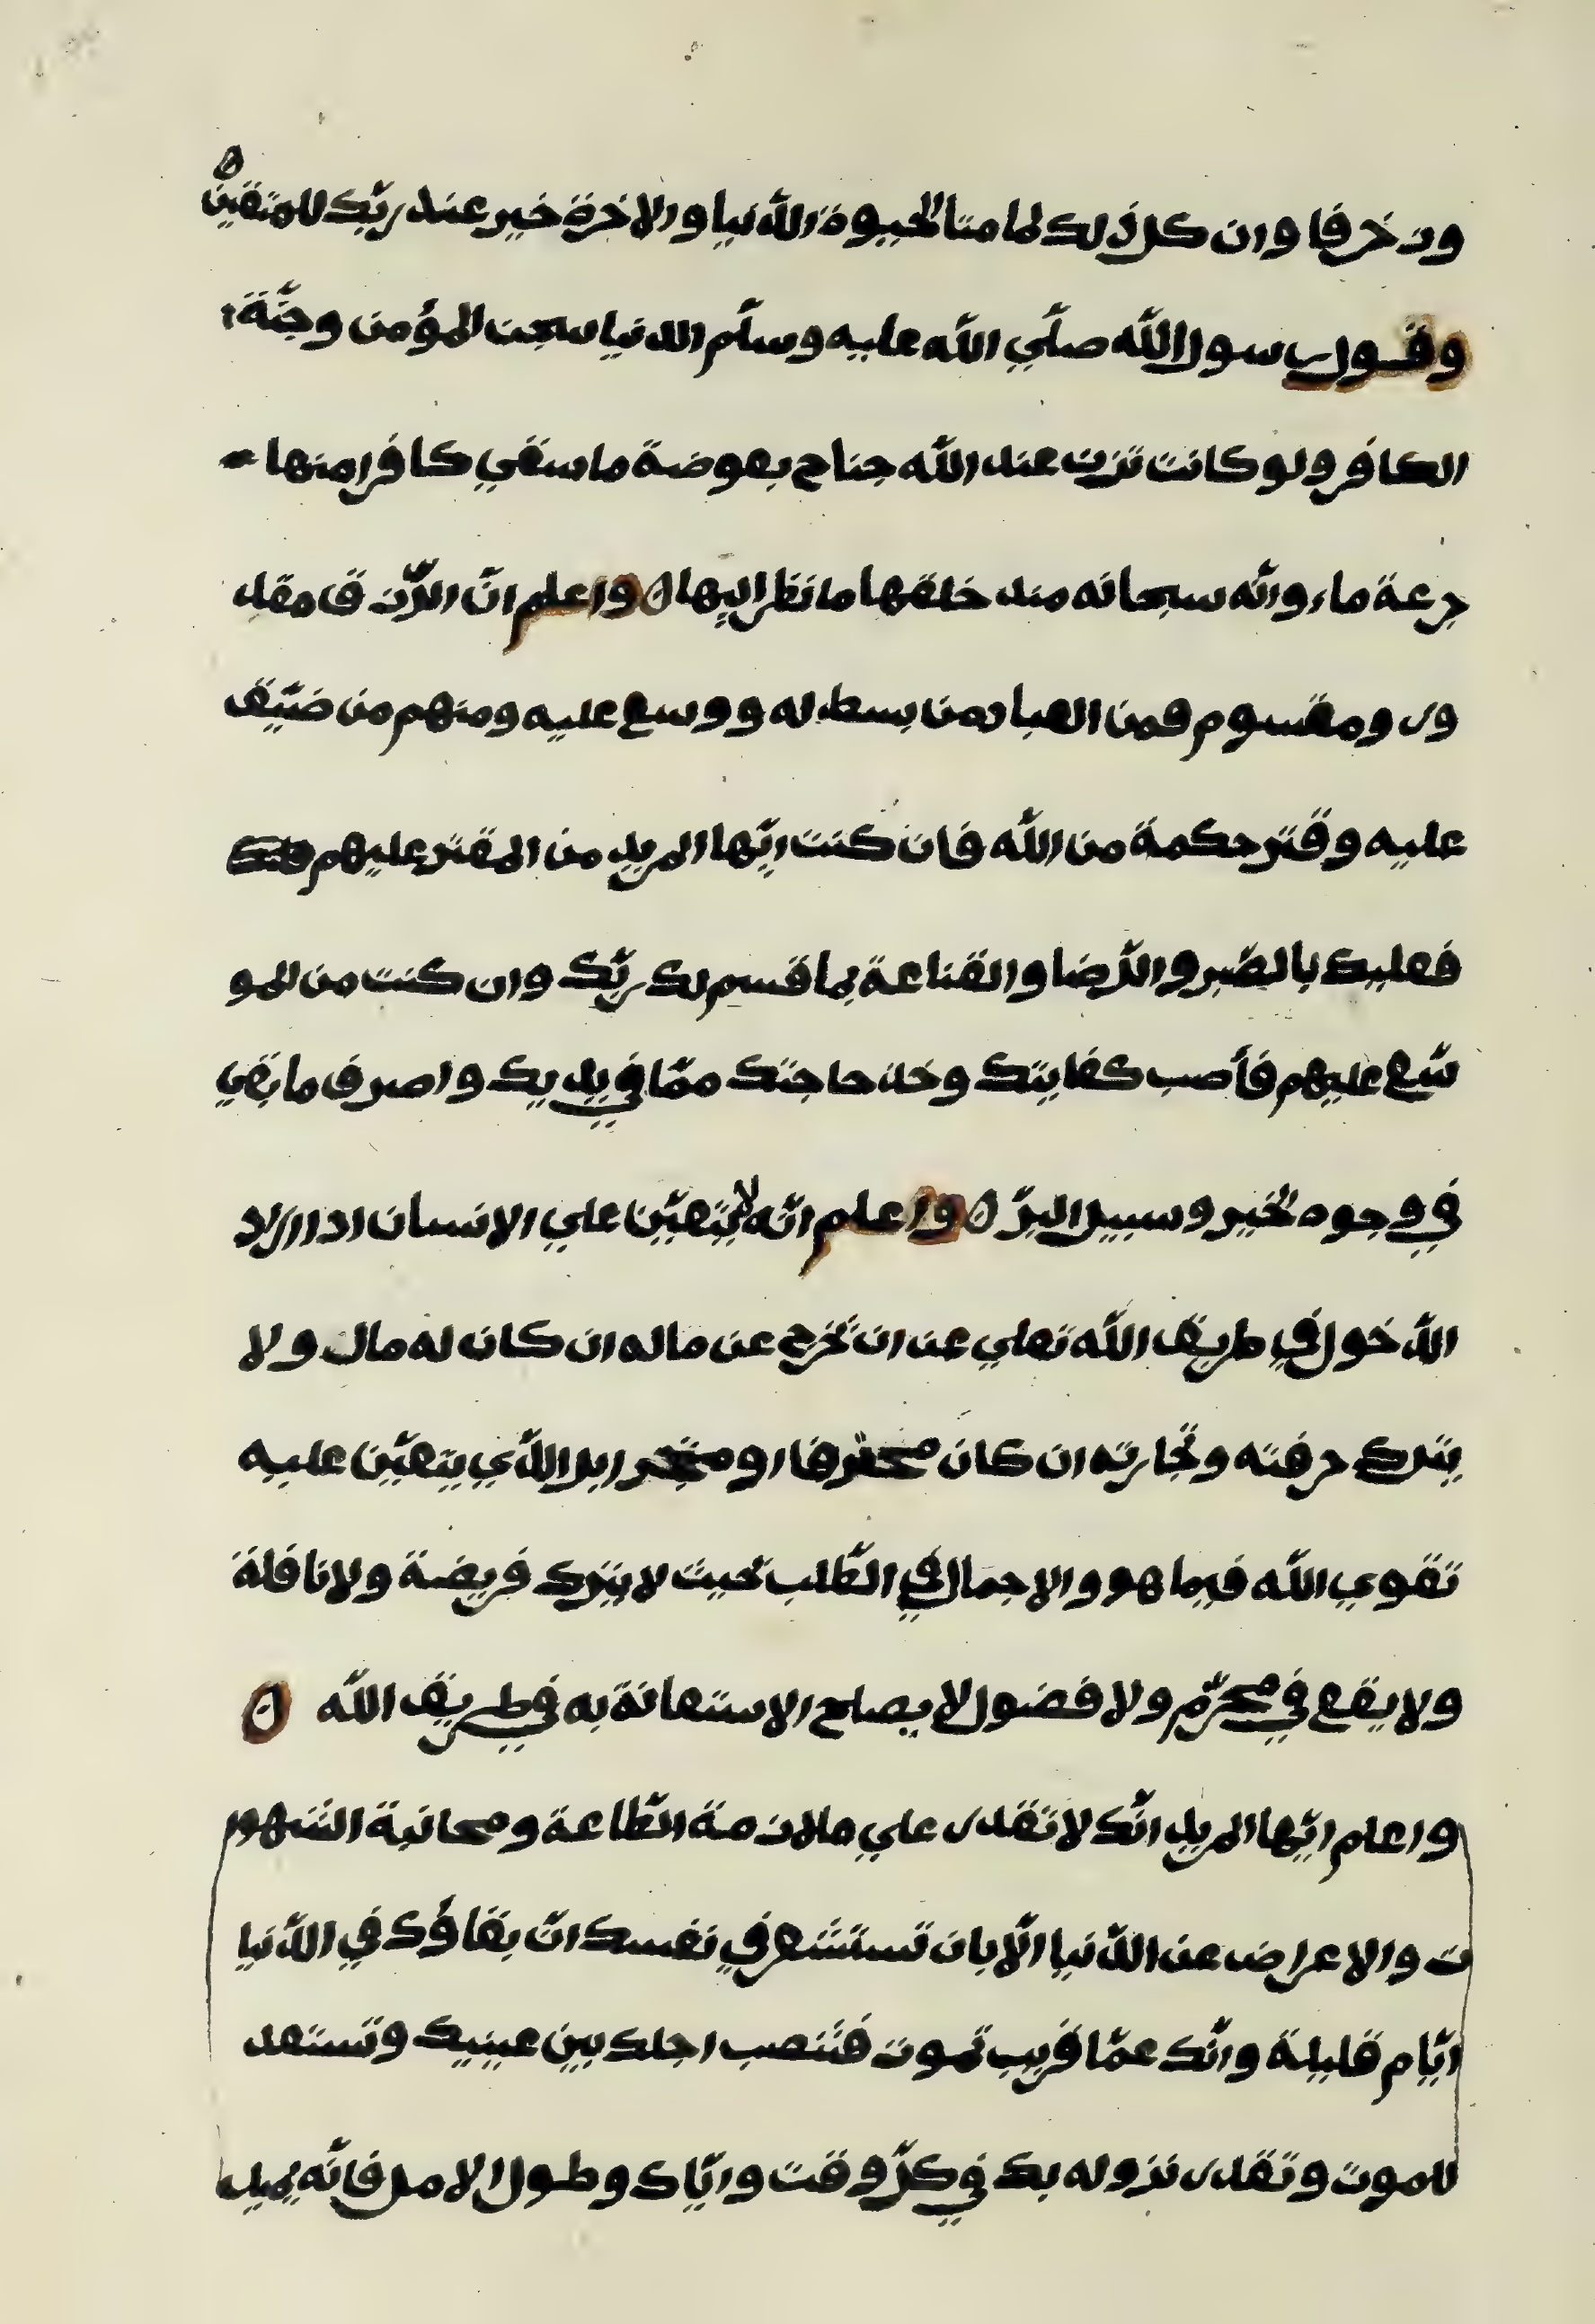 وزخرفا وان كل ذلك لما متا الحيوة الدّنيا والاخرة خير عند ربّك للمتقين ه
وقول رسول اللّه صلّي اللّه عليه وسلّم الدنيا سجن المؤمن وجنّة
الكافر ولو كانت تزن عند اللّه جناح بعوضة ما سقي كافرا منها
جرعة ماء وانّه سبحانه منذ خلقها ما نظر اليها ه واعلم انّ الرّزق مقد
ور ومقسوم فمن العباد من بسط له ووسع عليه ومنهم من ضيّق
عليه وقتر حكمة من اللّه فان كنت ايّها المريد من المقتر عليهم
فعليك بالصّبر والرّضا والقناعة بما قسم لك ربّك وان كنت من المو
سّع عليهم فأصب كفايتك وخذ حاجتك ممّا في يديك واصرف ما بقي
في وجوه الخير وسبيل البرّ ه واعلم انّه لا يتعيّن علي الانسان اذا اراد
الدّخول في طريق اللّه تعلي عن ان تخرج عن ماله ان كان له مال ولا
يترك حرفته وتجارته ان كان محترفا او متجرا بل الذّي يتعيّن عليه
تقوي اللّه فيما هو والاجمال في الطّلب بحيث لا يترك فريضة ولا نافلة
ولا يقع في محرّم ولا فضول لا يصلح الاستعانة به في طريق اللّه ه
واعلم ايّها المريد انّك لا تقدر علي ملازمة الطّاعة ومجانبة الشّهوا
ت والاعراض عن الدّنيا الّا بان تستشعر في نفسك انّ بقاؤك في الدّنيا
ايّام قليلة وانّك عمّا قريب تموت فتنصب اجلك بين عينيك وتستعد
للموت وتقدر نزوله بك في كلّ وقت وايّاك وطول الامل فانّه يميل